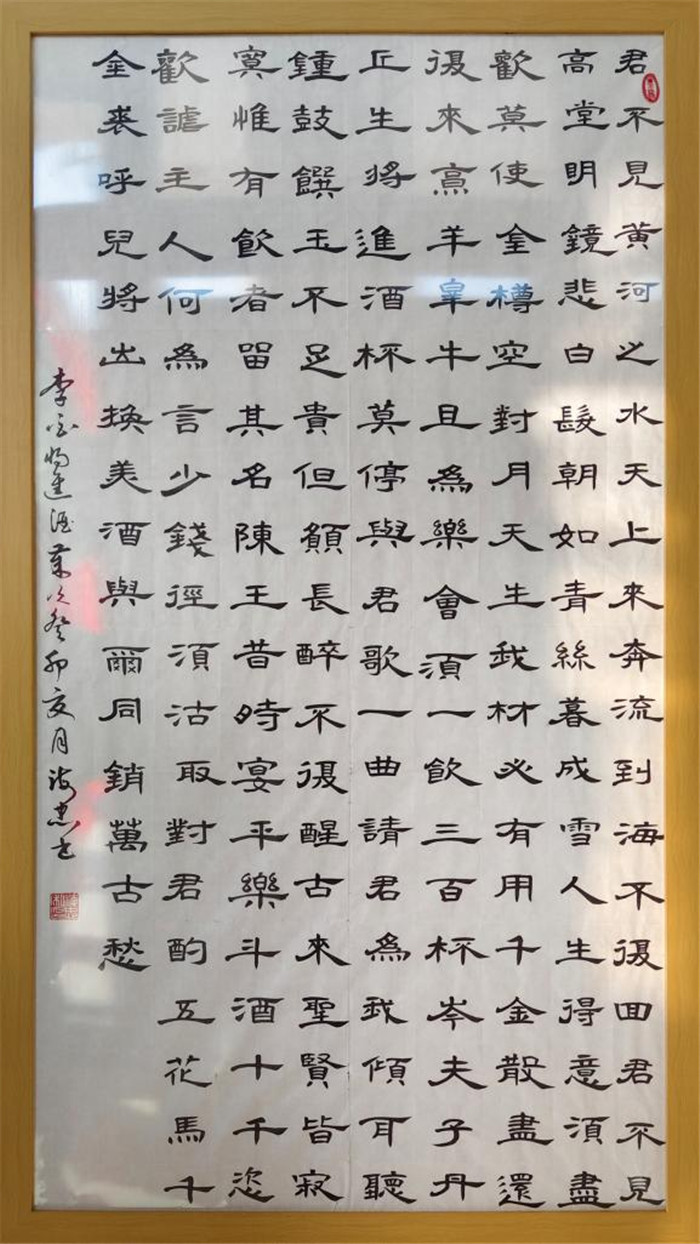 君不見黃河之水天上來奔流到海不復回君不見
高堂明鏡悲白髮朝如青絲暮成雪人生得意須盡
歡莫使金樽空對月天生我材必有用千金散盡還
復來烹羊宰牛且為樂會須一飲三百杯岑夫子丹
丘生將進酒杯莫停與君歌一曲請君為我傾耳聽
鍾鼓饌玉不足貴但願長醉不復醒古來聖賢皆寂
寞惟有飲者留其名陳王昔時宴平樂斗酒十千恣
歡謔主人何為言少錢徑須沽取對君酌五花馬千
金裘呼兒將出換美酒與爾同銷萬古愁
李白將進酒歲次癸卯夏月忠书